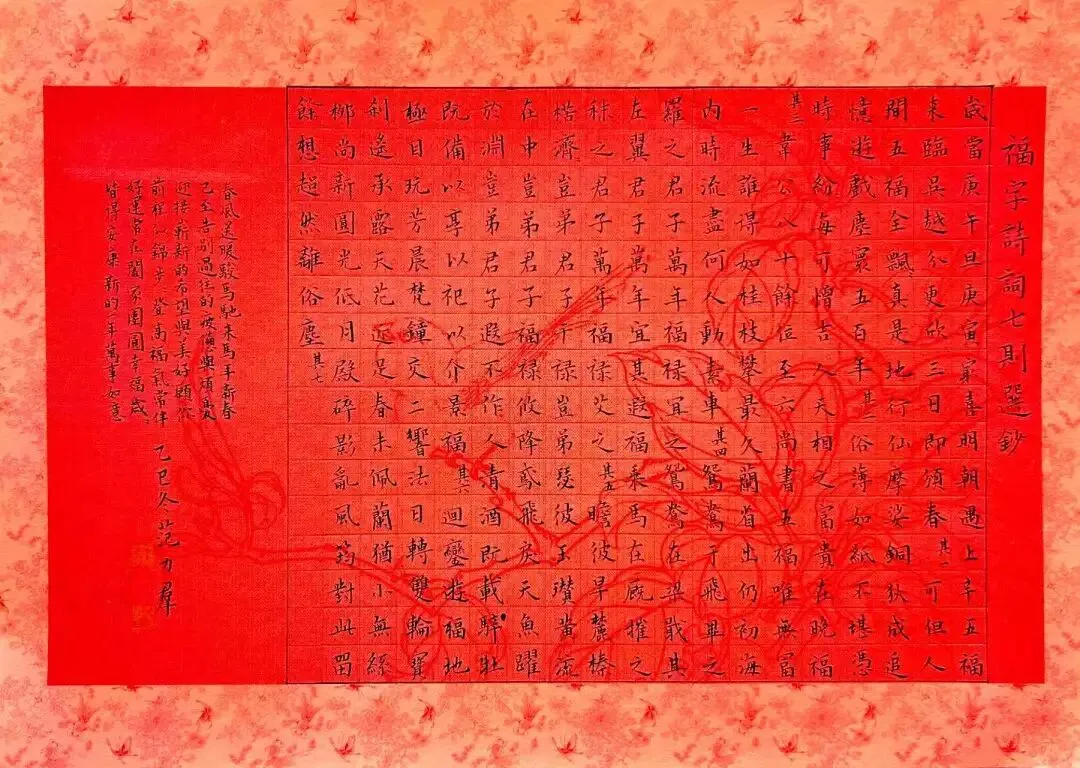 福字詩詞七則選鈔
歲當庚午旦庚寅窮喜明朝遇上辛五福
来臨吳越分更欣三日即頒春其一可但人
間五福全飄真是地行仙摩娑銅狄成追
憶遊戲塵寰五百年其二俗薄如紙不堪憑
時事紛海可憎吉人天相之富貴在晚福
其三韋公八十餘位至六尚書五福唯無富
一生誰得如桂枝攀最久蘭省出仍初海
内時流盡何人動素車其四鴛鴦于飛畢之
羅之君子萬年福禄宜之鴛鴦在梁戢其
左翼君子萬年宜其遐福乘馬在厩摧之
秣之君子萬年福禄艾之其五瞻彼旱麓榛
楛濟豈弟君子干禄豈弟瑟彼玉瓚黄流
在中豈弟君子福禄攸降鳶飛戾天魚躍
於淵豈弟君子遐不作人清酒既載騂牡
既備以享以祀以介景福其六迴鑾遊福地
極目玩芳晨梵鐘交二響法日轉雙輪寶
刹遙承露天花近足春未佩蘭猶小無絲
柳尚新圓光低月殿碎影亂風筠對此留
餘想超然離俗塵其七
春風送暖駿馬馳来馬年新春
已至告別過往的疲憊與煩憂
迎接嶄新的希望與美好願你
前程似錦步步登高福氣常伴
好運常在闔家團圓幸福歲歲
皆得安樂新的一年萬事如意
乙巳冬范力群